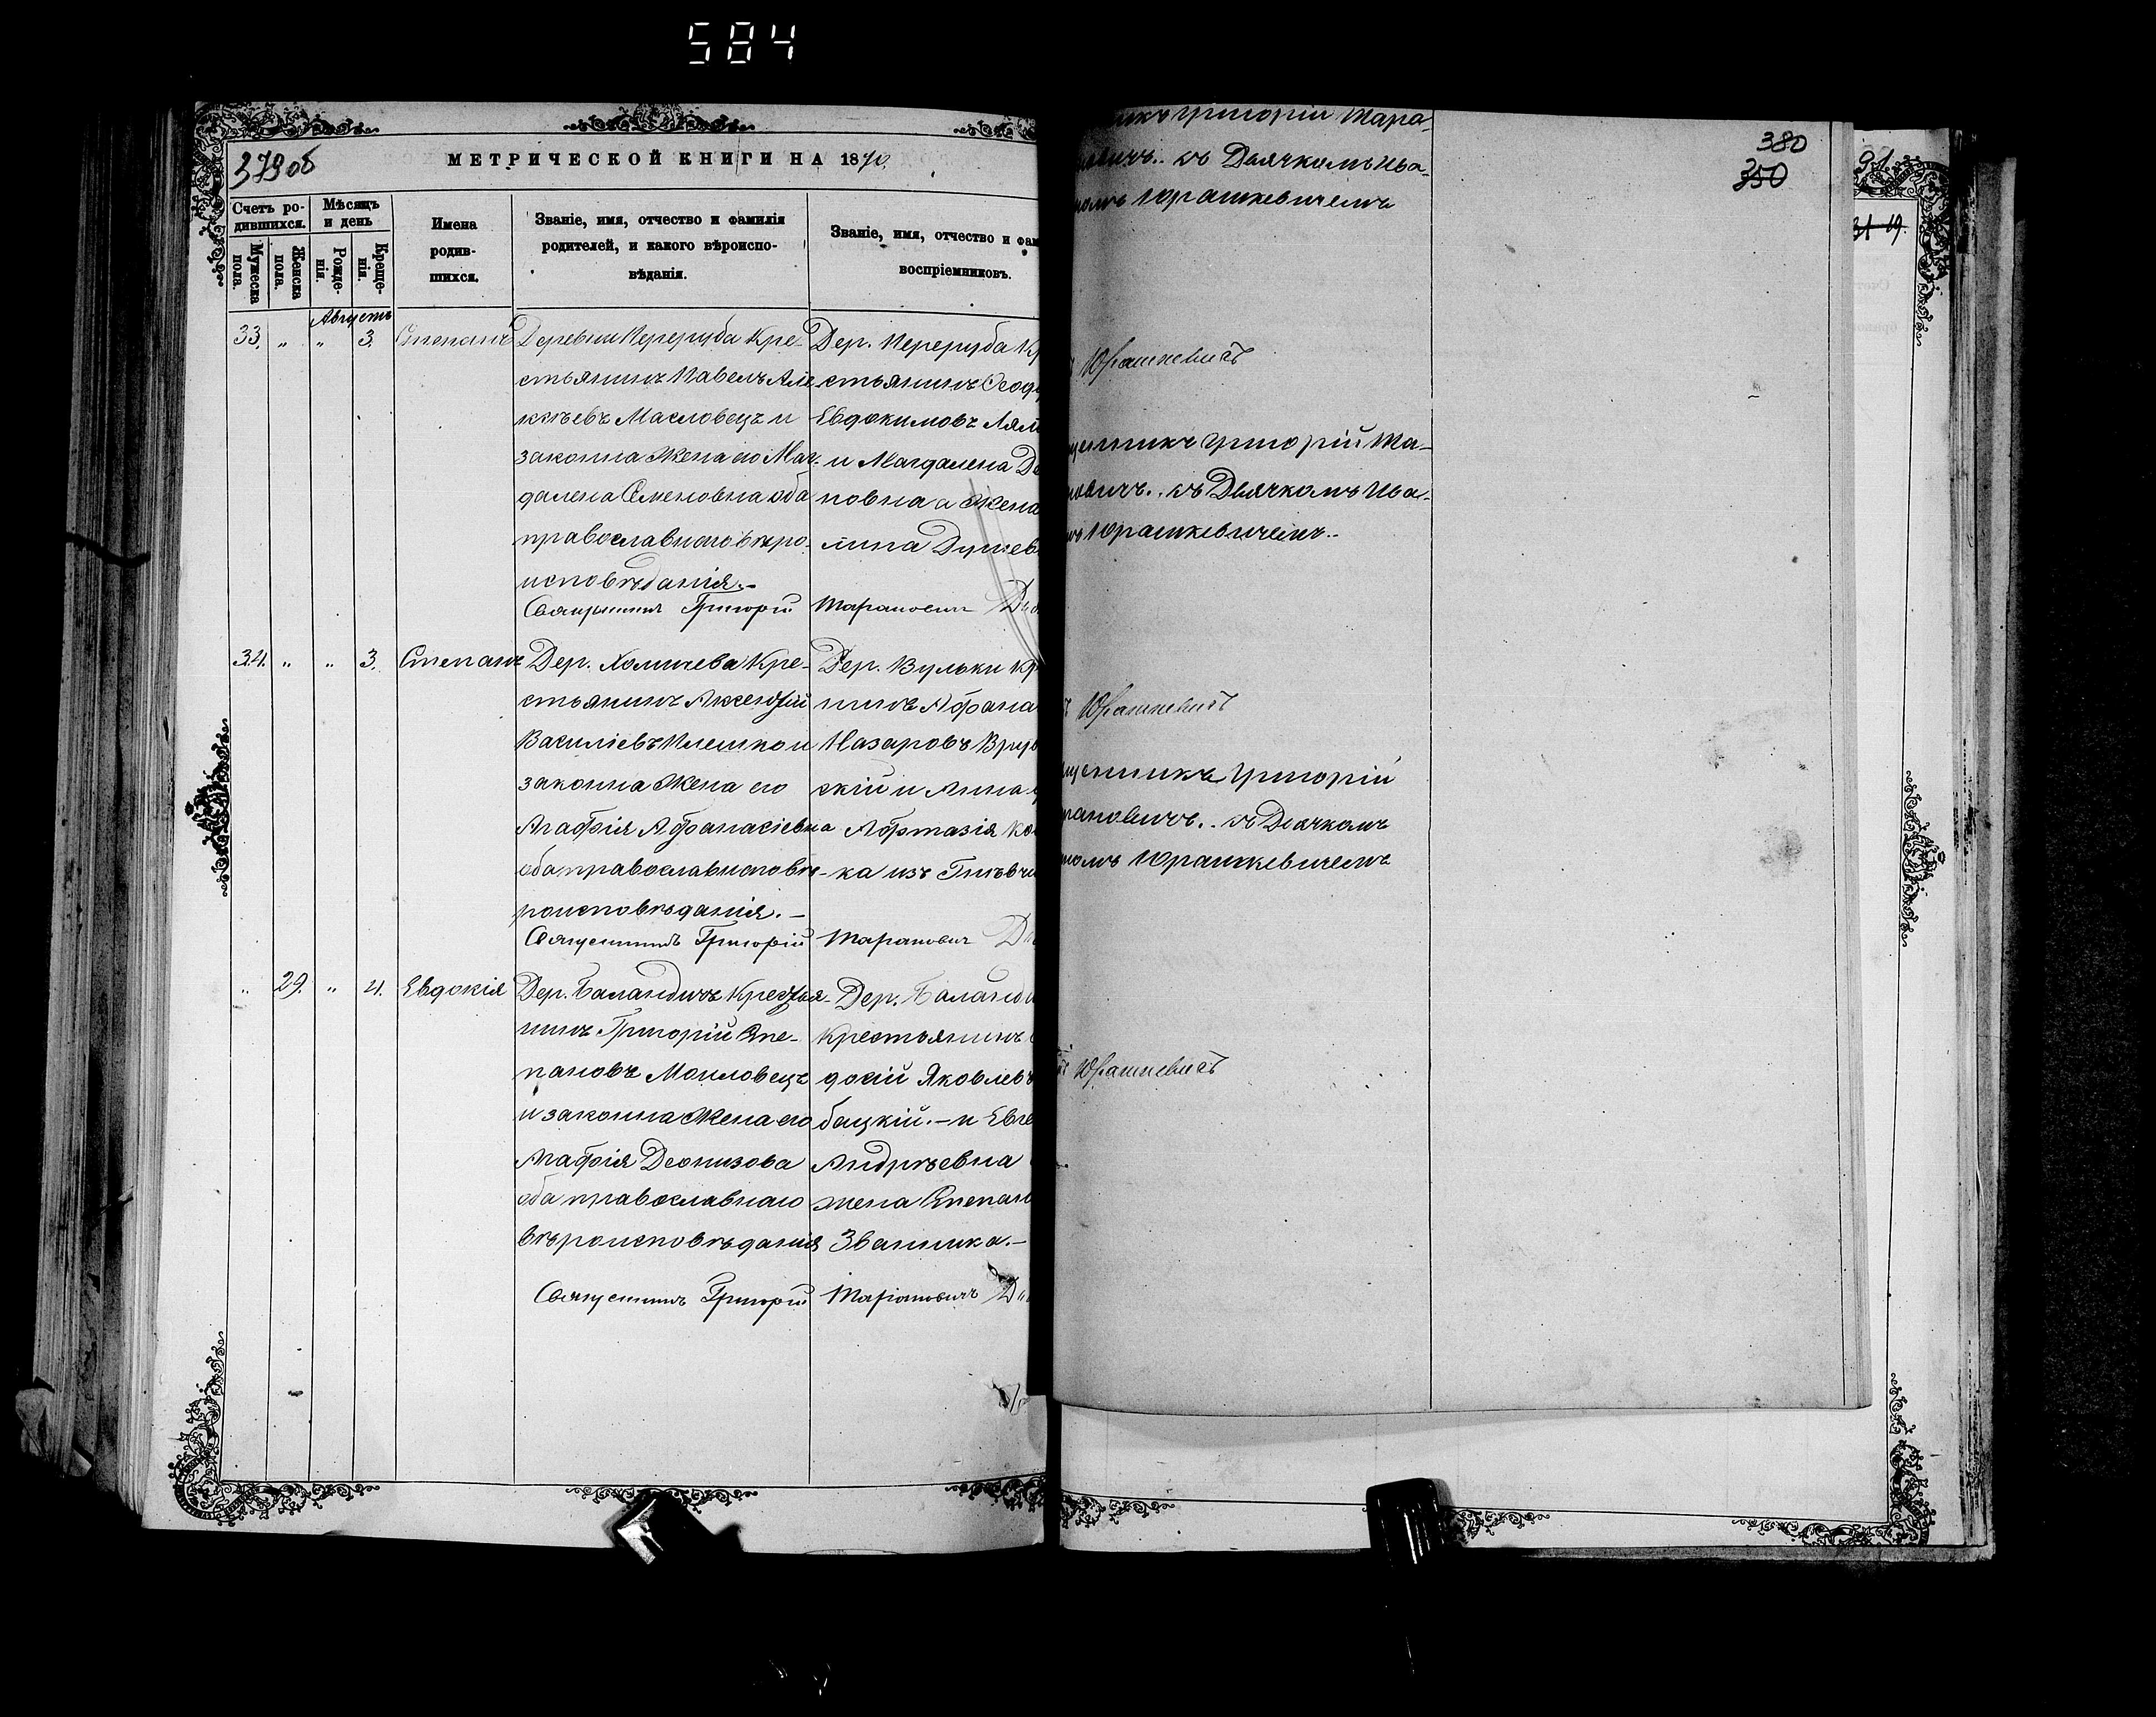 584
379об
МЕТРИЧЕСКОЙ КНИГИ НА 1870.
Счетъ родившихся.
Мужеска пола.
Женска пола.
Мѣсяцъ и день
Рожденія.
Крещенія.
Имена родившихся.
Званіе, имя, отчество и фамилія родителей, и какого вѣроисповѣданія.
Званіе, имя, отчество и фам
воспріемниковъ.
Августъ
33. " " 3. Степанъ
Деревни Переруба Кре-
стьянинъ Павелъ Але-
ксѣевъ Масловецъ и
законна жена его Маг-
далена Семеновна оба
православного вѣро-
исповѣданія.–
Дер. Переруба Кр
стьянинъ Ѳеод
Евдокимовъ
и Магдалена
повна а жена
Священникъ Григорій Таранович
34. " " 3. Степанъ
Дер. Хомичева Кре-
стьянинъ Аксентій
Василіевъ и
законна жена его
Агафія Афанасіевна
оба православного вѣ-
роисповѣданія.–
Дер. Вульки Кр
нинъ Афана
Назаровъ
скій и Анна
ка изъ
Священникъ Григорій Таранович
" 29. " 4. Евдокія
Дер. Баландичъ Крестья-
нинъ Григорій Сте-
пановъ
и законна жена его
Агафія Деонизова
оба православнаго
вѣроисповѣданія
Дер. Баланди
Крестьянинъ
досій Яковлевъ
бацкій.– и Евге
Андреевна
жена Степан
Званника.–
Священникъ Григорій Тарановичъ
380
350
91
31 19.
икъ Григорій Тара-
новичъ.. съ Дьячкомъ Ива-
номъ Юрашкевичемъ
Юрашкевичъ
щенникъ Григорій Та-
новичъ.. съ Дьячкомъ Ива-
мъ Юрашкевичемъ..
Юрашкевичъ
щенникъ Григорій
рановичъ.. съ Дьячкомъ
номъ Юрашкевичемъ
Юрашкевичъ